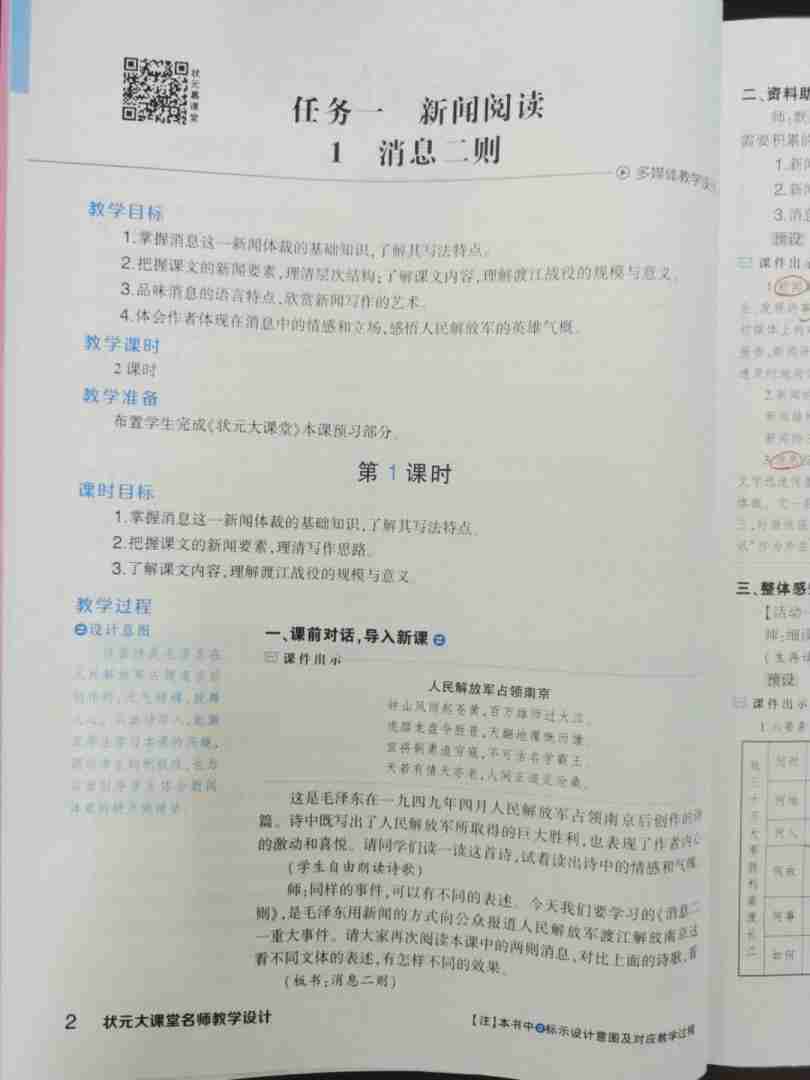 状元慕课堂
任务一 新闻阅读
1 消息二则
多媒体教学设
教学目标
1.掌握消息这一新闻体裁的基础知识,了解其写法特点。
2.把握课文的新闻要素,理清层次结构;了解课文内容,理解渡江战役的规模与意义。
3.品味消息的语言特点,欣赏新闻写作的艺术。
4.体会作者体现在消息中的情感和立场,感悟人民解放军的英雄气概。
教学课时
2课时
教学准备
布置学生完成《状元大课堂》本课预习部分。
第1课时
课时目标
1.掌握消息这一新闻体裁的基础知识,了解其写法特点。
2.把握课文的新闻要素,理清写作思路。
3.了解课文内容,理解渡江战役的规模与意义。
教学过程
设计意图
一、课前对话,导入新课
课件出示
人民解放军占领南京
钟山风雨起苍黄,百万雄师过大江。
虎踞龙盘今胜昔,天翻地覆慨而慷。
宜将剩勇追穷寇,不可沽名学霸王。
天若有情天亦老,人间正道是沧桑。
这是毛泽东在一九四九年四月人民解放军占领南京后创作的诗
篇。诗中既写出了人民解放军所取得的巨大胜利,也表现了作者内心
的激动和喜悦。请同学们读一读这首诗,试着读出诗中的情感和气概。
(学生自由朗读诗歌)
师:同样的事件,可以有不同的表述。今天我们要学习的《消息二
则》,是毛泽东用新闻的方式向公众报道人民解放军渡江解放南京这
一重大事件。请大家再次阅读本课中的两则消息,对比上面的诗歌,看
看不同文体的表述,有怎样不同的效果。
(板书:消息二则)
2 状元大课堂名师教学设计
【注】本书中标示设计意图及对应教学过程
二、资料助
需要积累的
1.新闻
2.新闻
3.消息
预设
课件出示
三、整体感
【活动一
师:细读
(生再读
预设
课件出示
何时
何地
何人
何故
何事
如何